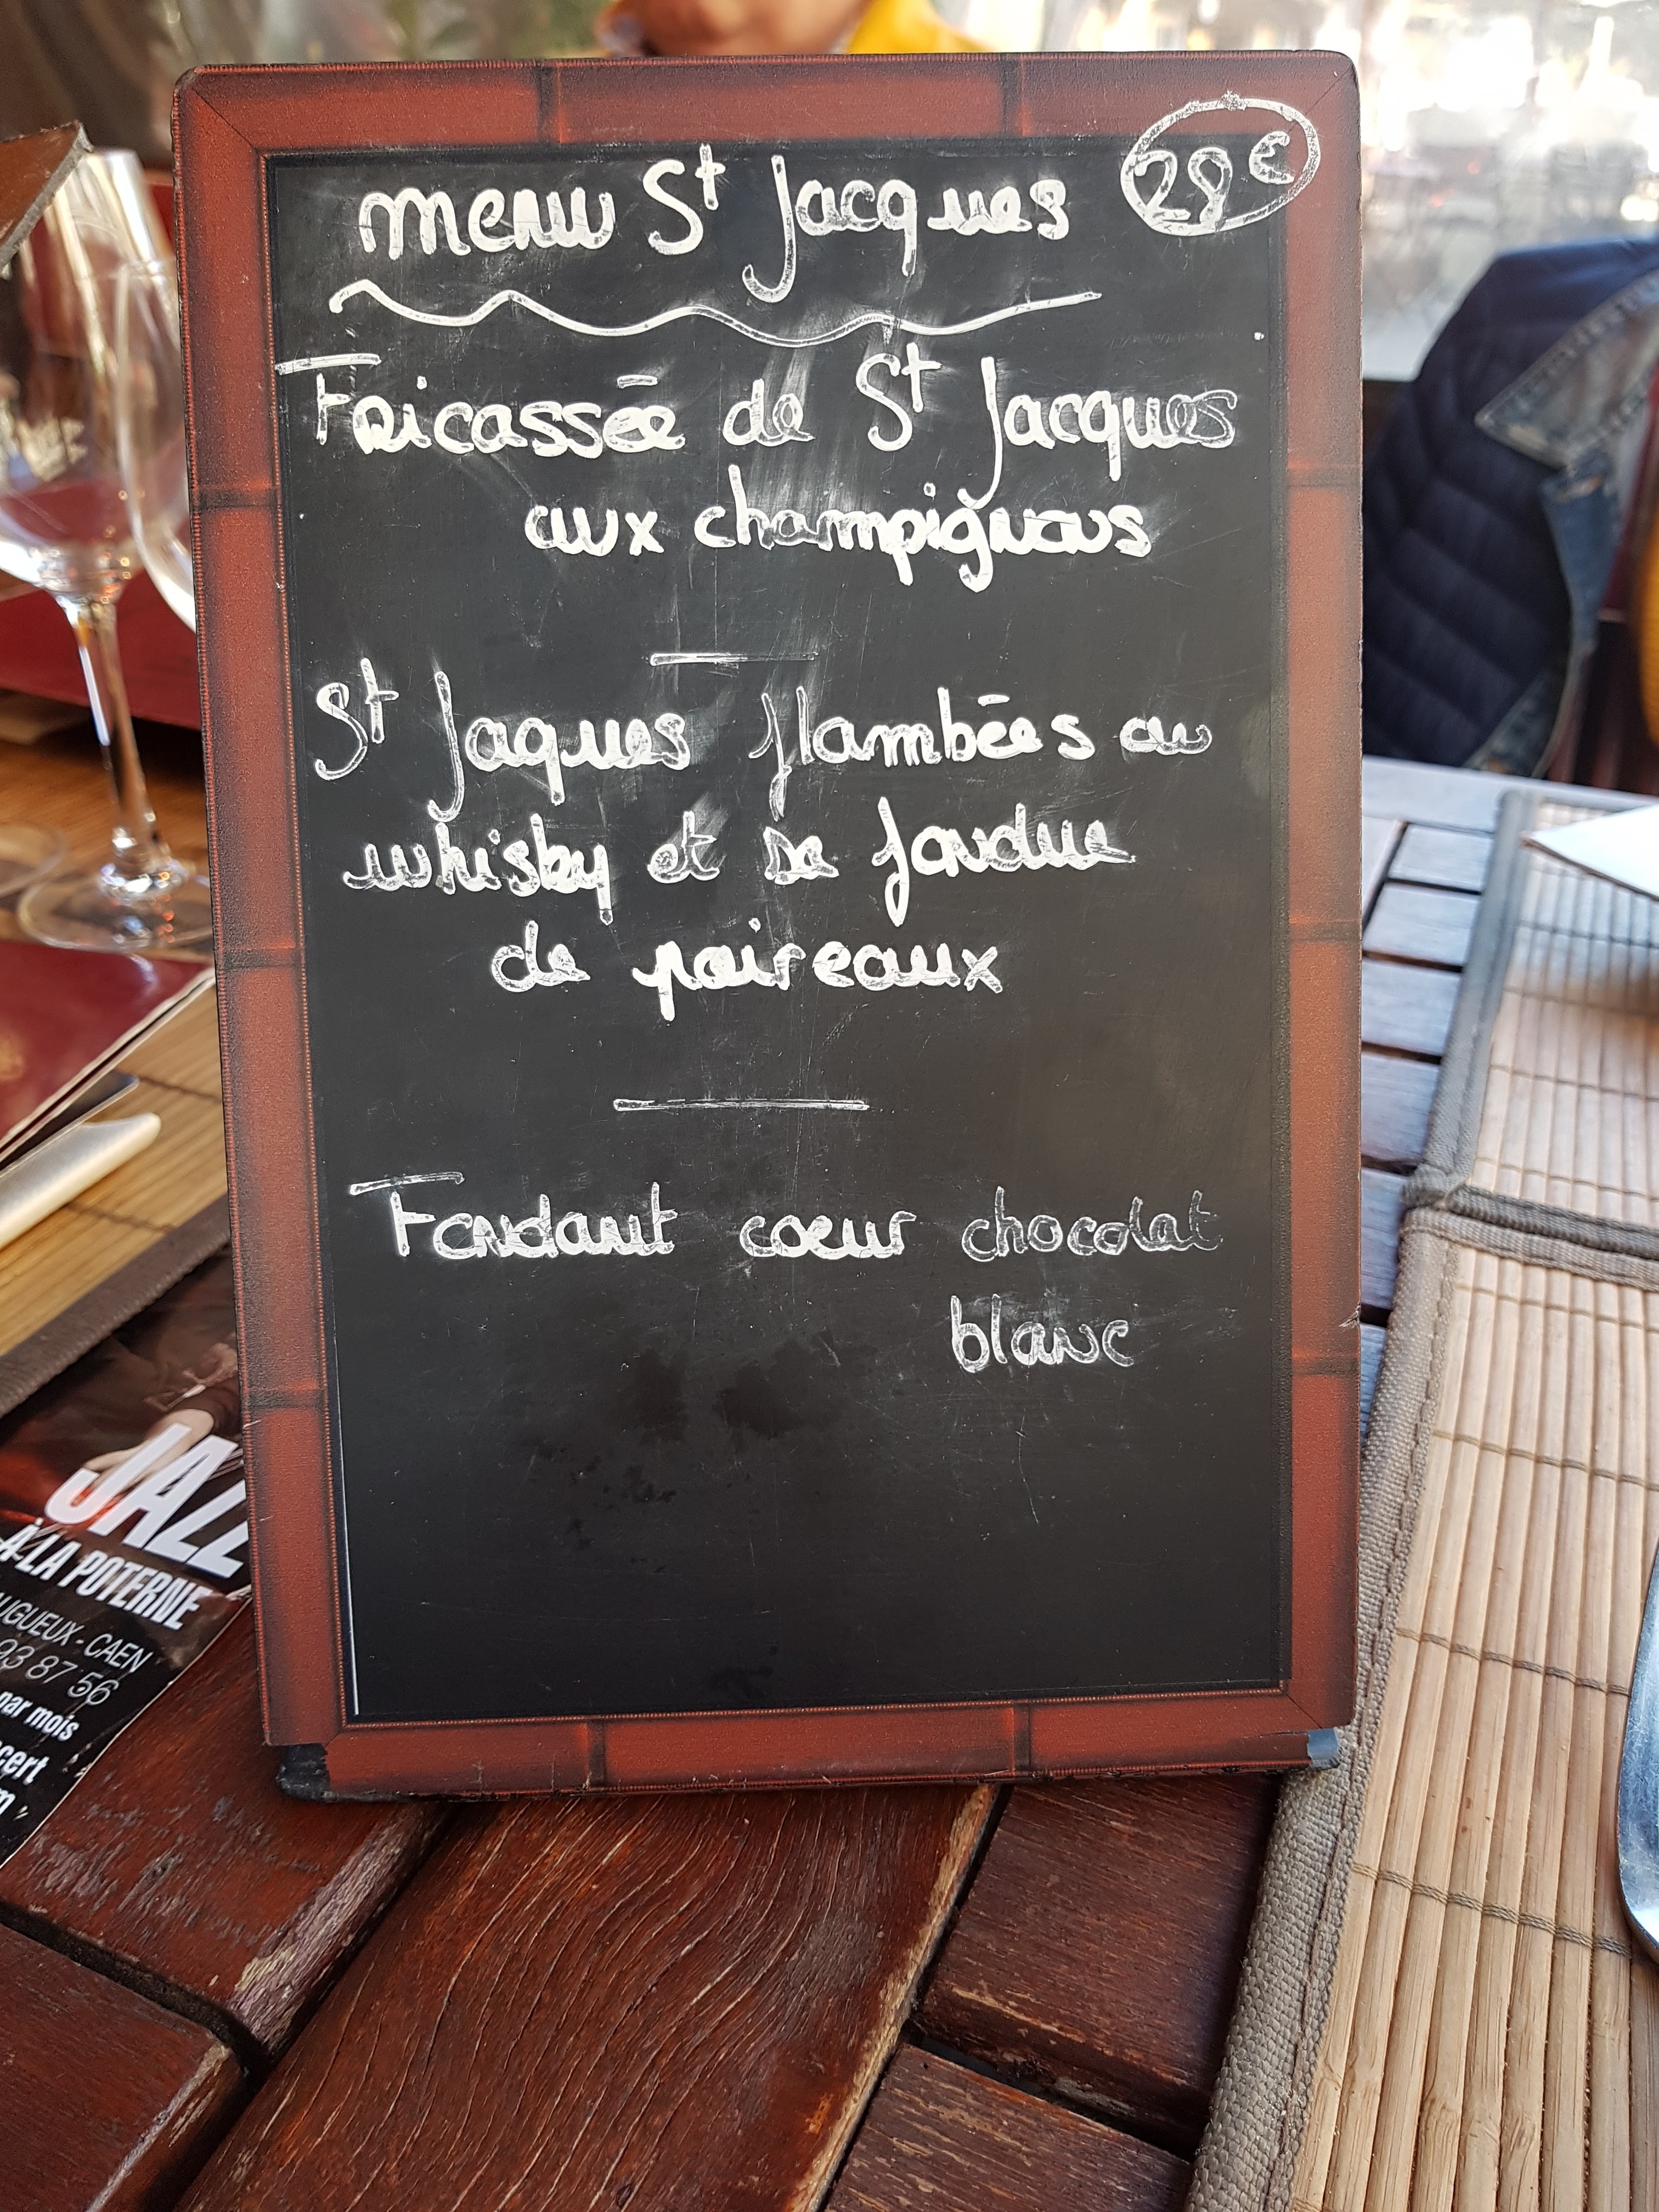 menu St Jacques 28€
Fricassée de St Jacques
aux champignons
St Jaques flambées au
whisky et sa fondue
de poireaux
Fondant coeur chocolat
blanc
JAZZ
À LA POTERNE
CAEN
93 87 56
par mois